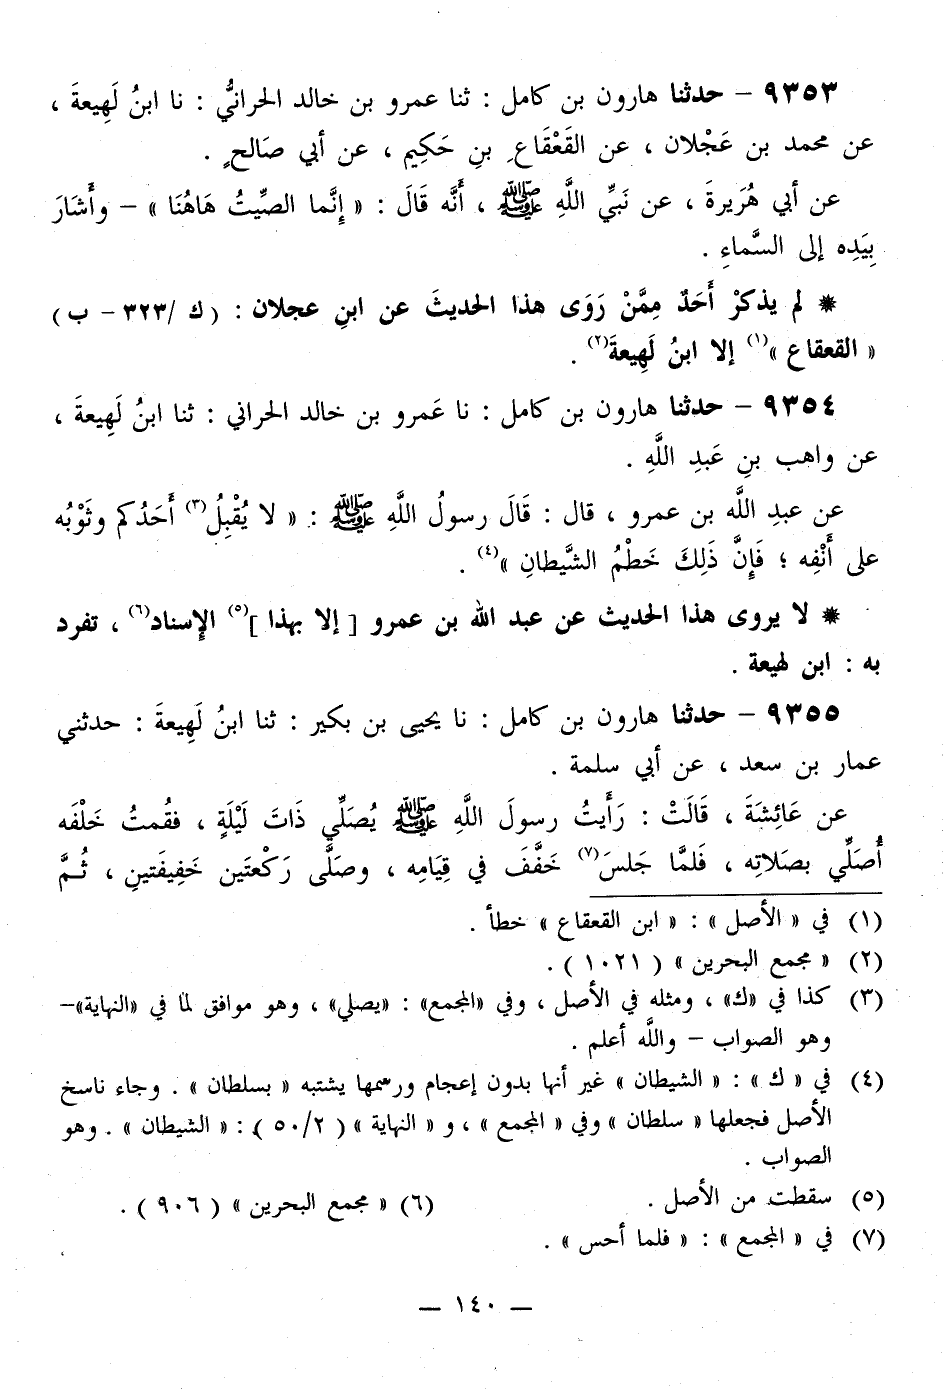 ٩٣٥٣ – حدثنا هارون بن كامل : ثنا عمرو بن خالد الحرانيُّ : نا ابنُ لَهِيعةَ ،
عن محمد بن عَجْلان ، عن القَعْقَاعِ بنِ حَكِيم ، عن أبي صَالحٍ .
عن أبي هُرَيرةَ ، عن نَبِّي اللَّهِ ﷺ ، أَنَّه قَالَ : « إِنَّما الصِّيتُ هَاهُنَا » – وأَشَارَ
بِيَدِه إلى السَّماءِ .
* لم يذكرْ أَحَدٌ مِمَّنْ رَوَى هذا الحديثَ عن ابنِ عجلان : ( ك /٣٢٣ – ب )
« القعقاع »(١) إلا ابنُ لَهِيعةَ(٢) .
٩٣٥٤ – حدثنا هارون بن كامل : نا عَمرو بن خالد الحراني : ثنا ابنُ لَهِيعةَ ،
عن واهب بنِ عَبدِ اللَّهِ .
عن عبدِ اللَّه بن عمرو ، قال : قَالَ رسولُ اللَّهِ ﷺ : « لا يُقْبِلُ(٣) أَحَدُكم وثَوْبُه
على أَنْفِه ؛ فَإِنَّ ذَلِكَ خَطْمُ الشَّيطانِ »(٤) .
* لا يروى هذا الحديث عن عبد الله بن عمرو [ إلا بهذا ](٥) الإسناد(٦) ، تفرد
به : ابن لهيعة .
٩٣٥٥ – حدثنا هارون بن كامل : نا يحيى بن بكير : ثنا ابنُ لَهِيعةَ : حدثني
عمار بن سعد ، عن أبي سلمة .
عن عَائِشَةَ ، قَالَتْ : رَأَيتُ رسولَ اللَّهِ ﷺ يُصَلِّي ذَاتَ لَيْلَةٍ ، فقُمتُ خَلْفَه
أُصَلِّي بصَلاتِه ، فَلمَّا جَلسَ(٧) خَفَّفَ في قِيَامِه ، وصَلَّى رَكْعتَين خَفِيفَتينِ ، ثُمَّ
(١) في « الأصل » : « ابن القعقاع » خطأ .
(٢) « مجمع البحرين » ( ١٠٢١ ) .
(٣) كذا في «ك» ، ومثله في الأصل ، وفي «المجمع» : «يصلي» ، وهو موافق لما في «النهاية»–
وهو الصواب – واللَّه أعلم .
(٤) في « ك » : « الشيطان » غير أنها بدون إعجام ورسمها يشتبه « بسلطان » . وجاء ناسخ
الأصل فجعلها « سلطان » وفي « المجمع » ، و « النهاية » ( ٥٠/٢ ) : « الشيطان » . وهو
الصواب .
(٥) سقطت من الأصل . (٦) « مجمع البحرين » ( ٩٠٦ ) .
(٧) في « المجمع » : « فلما أحس » .
– ١٤٠ –